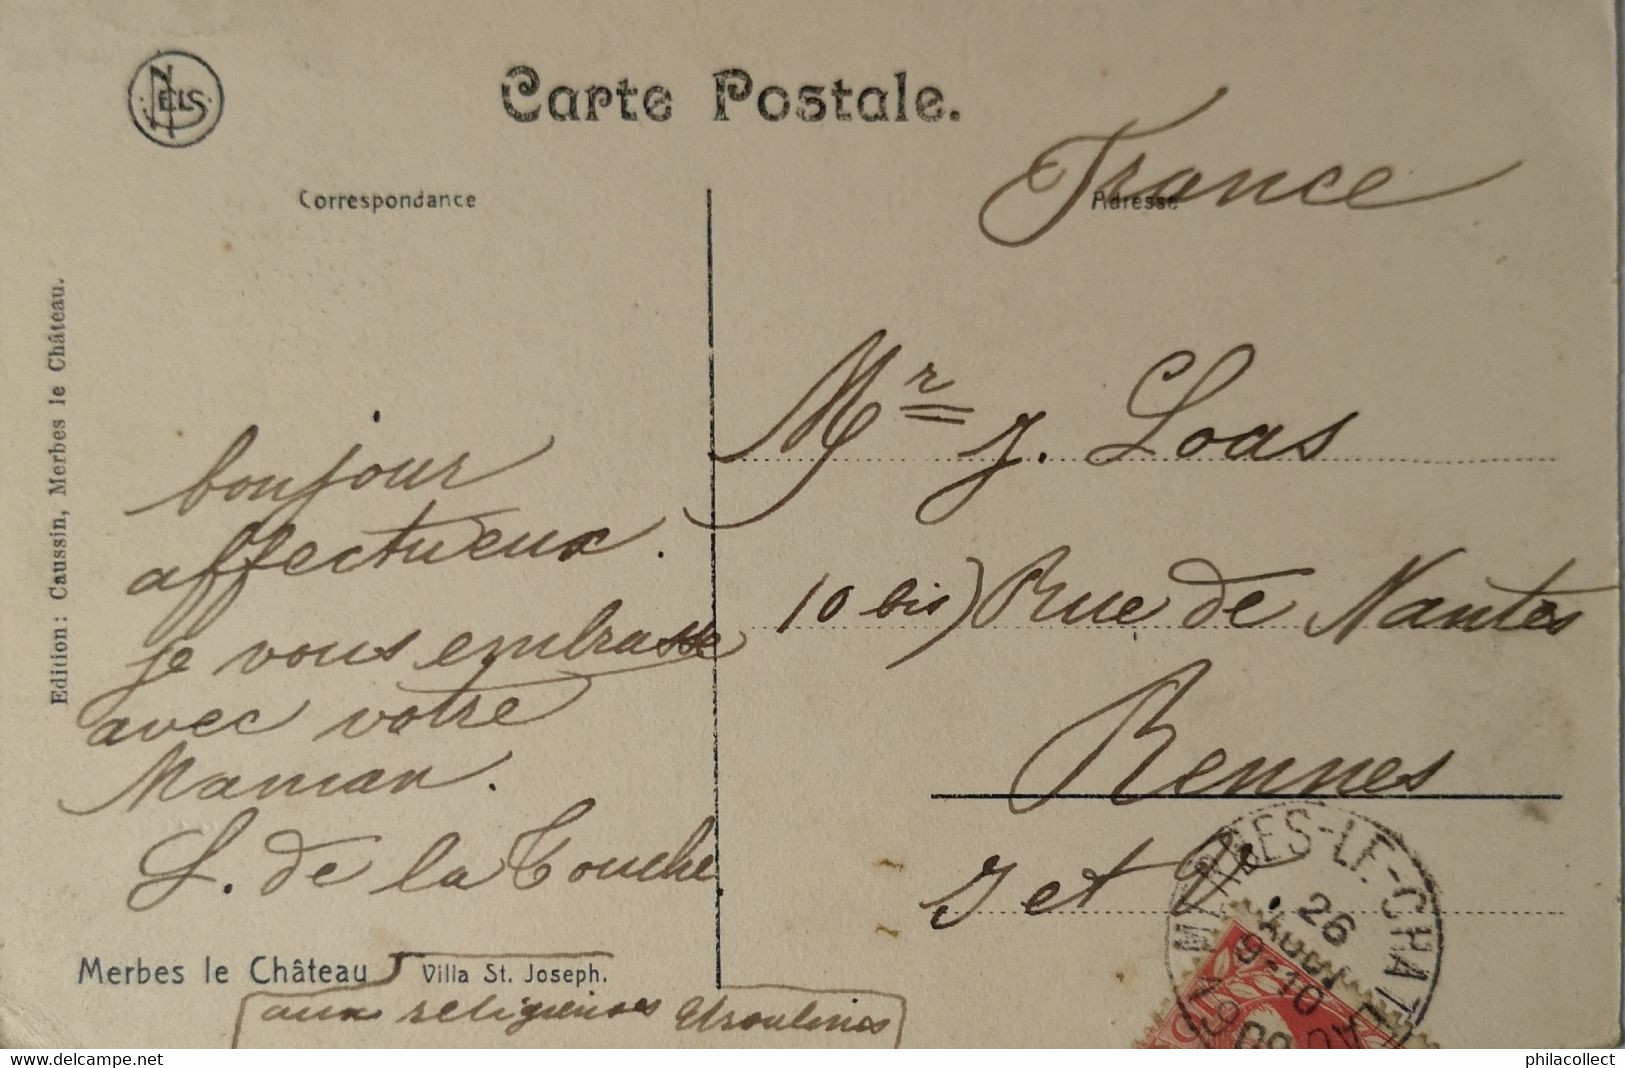 NELS
Carte Postale.
Correspondance
Adresse
France
Edition: Caussin, Merbes le Château.
bonjour
affectueux.
je vous embrasse
avec votre
Maman.
L. de la Touche
Mr J. Loas
10 bis) Rue de Nantes
Rennes
I et V.
MERBES-LE-CHAT
26
AOUT
9-10
09
Merbes le Château Villa St. Joseph.
aux religieuses Ursulines
philacollect